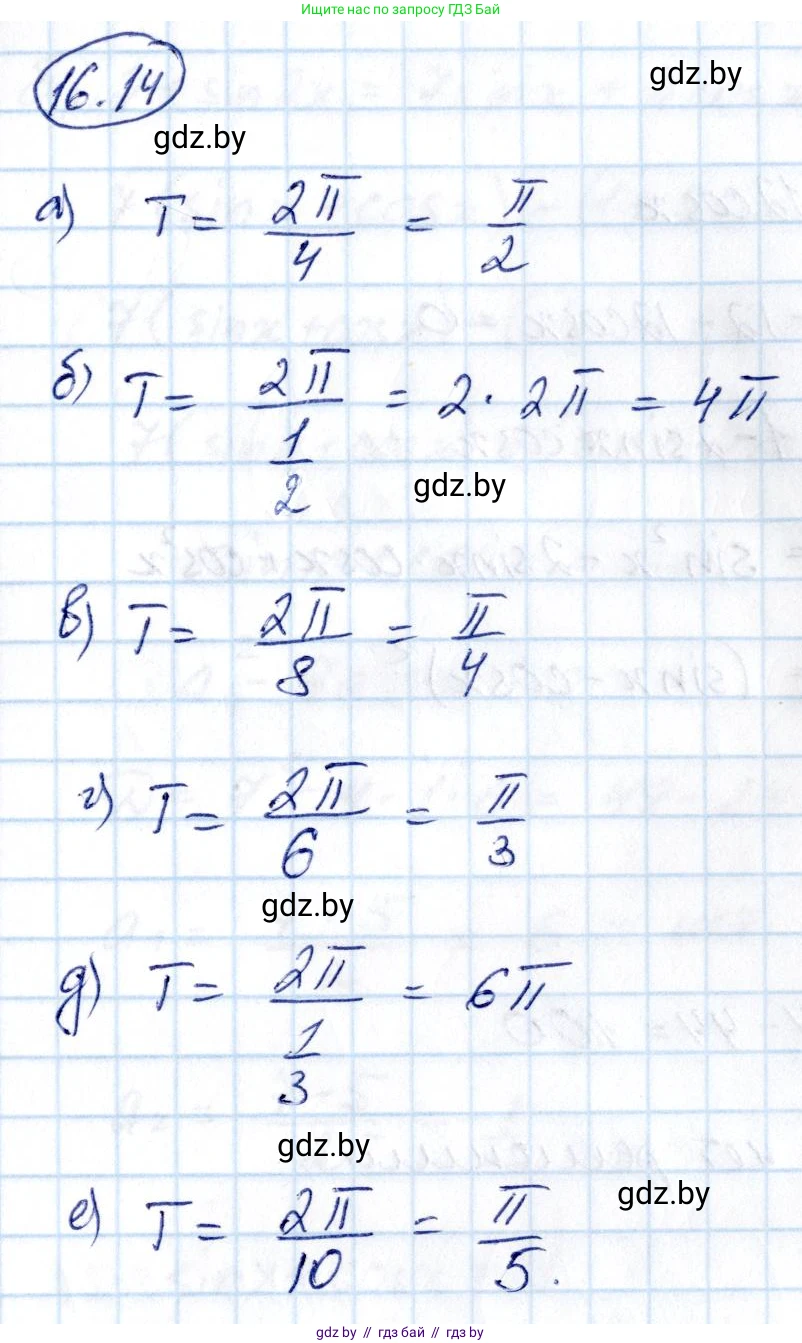 Ищите нас по запросу ГДЗ Бай
16.14
gdz.by
gdz.by
а) T = 2π/4 = π/2
б) T = 2π/(1/2) = 2 · 2π = 4π
gdz.by
в) T = 2π/8 = π/4
г) T = 2π/6 = π/3
gdz.by
д) T = 2π/(1/3) = 6π
gdz.by
gdz.by
е) T = 2π/10 = π/5.
gdz.by // гдз бай // гдз by